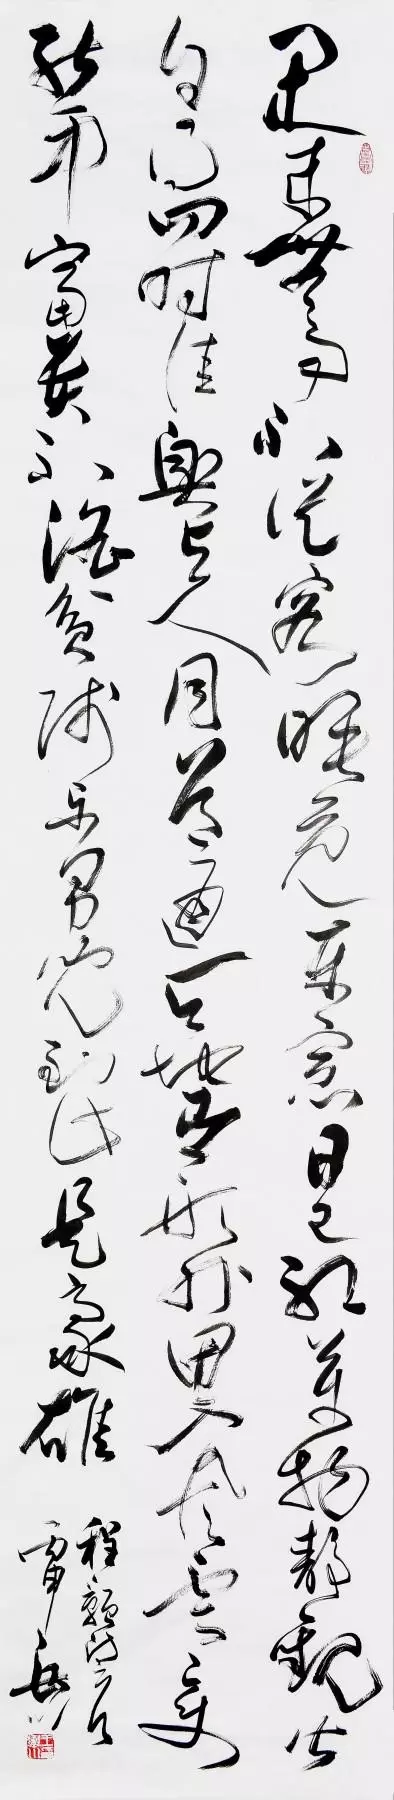 閑來無事不從容睡覺東窗日已紅萬物靜觀皆
自得四時佳興与人同道通天地有形外思入風雲變
態中富貴不淫貧賤樂男兒到此是豪雄
程顥詩一首